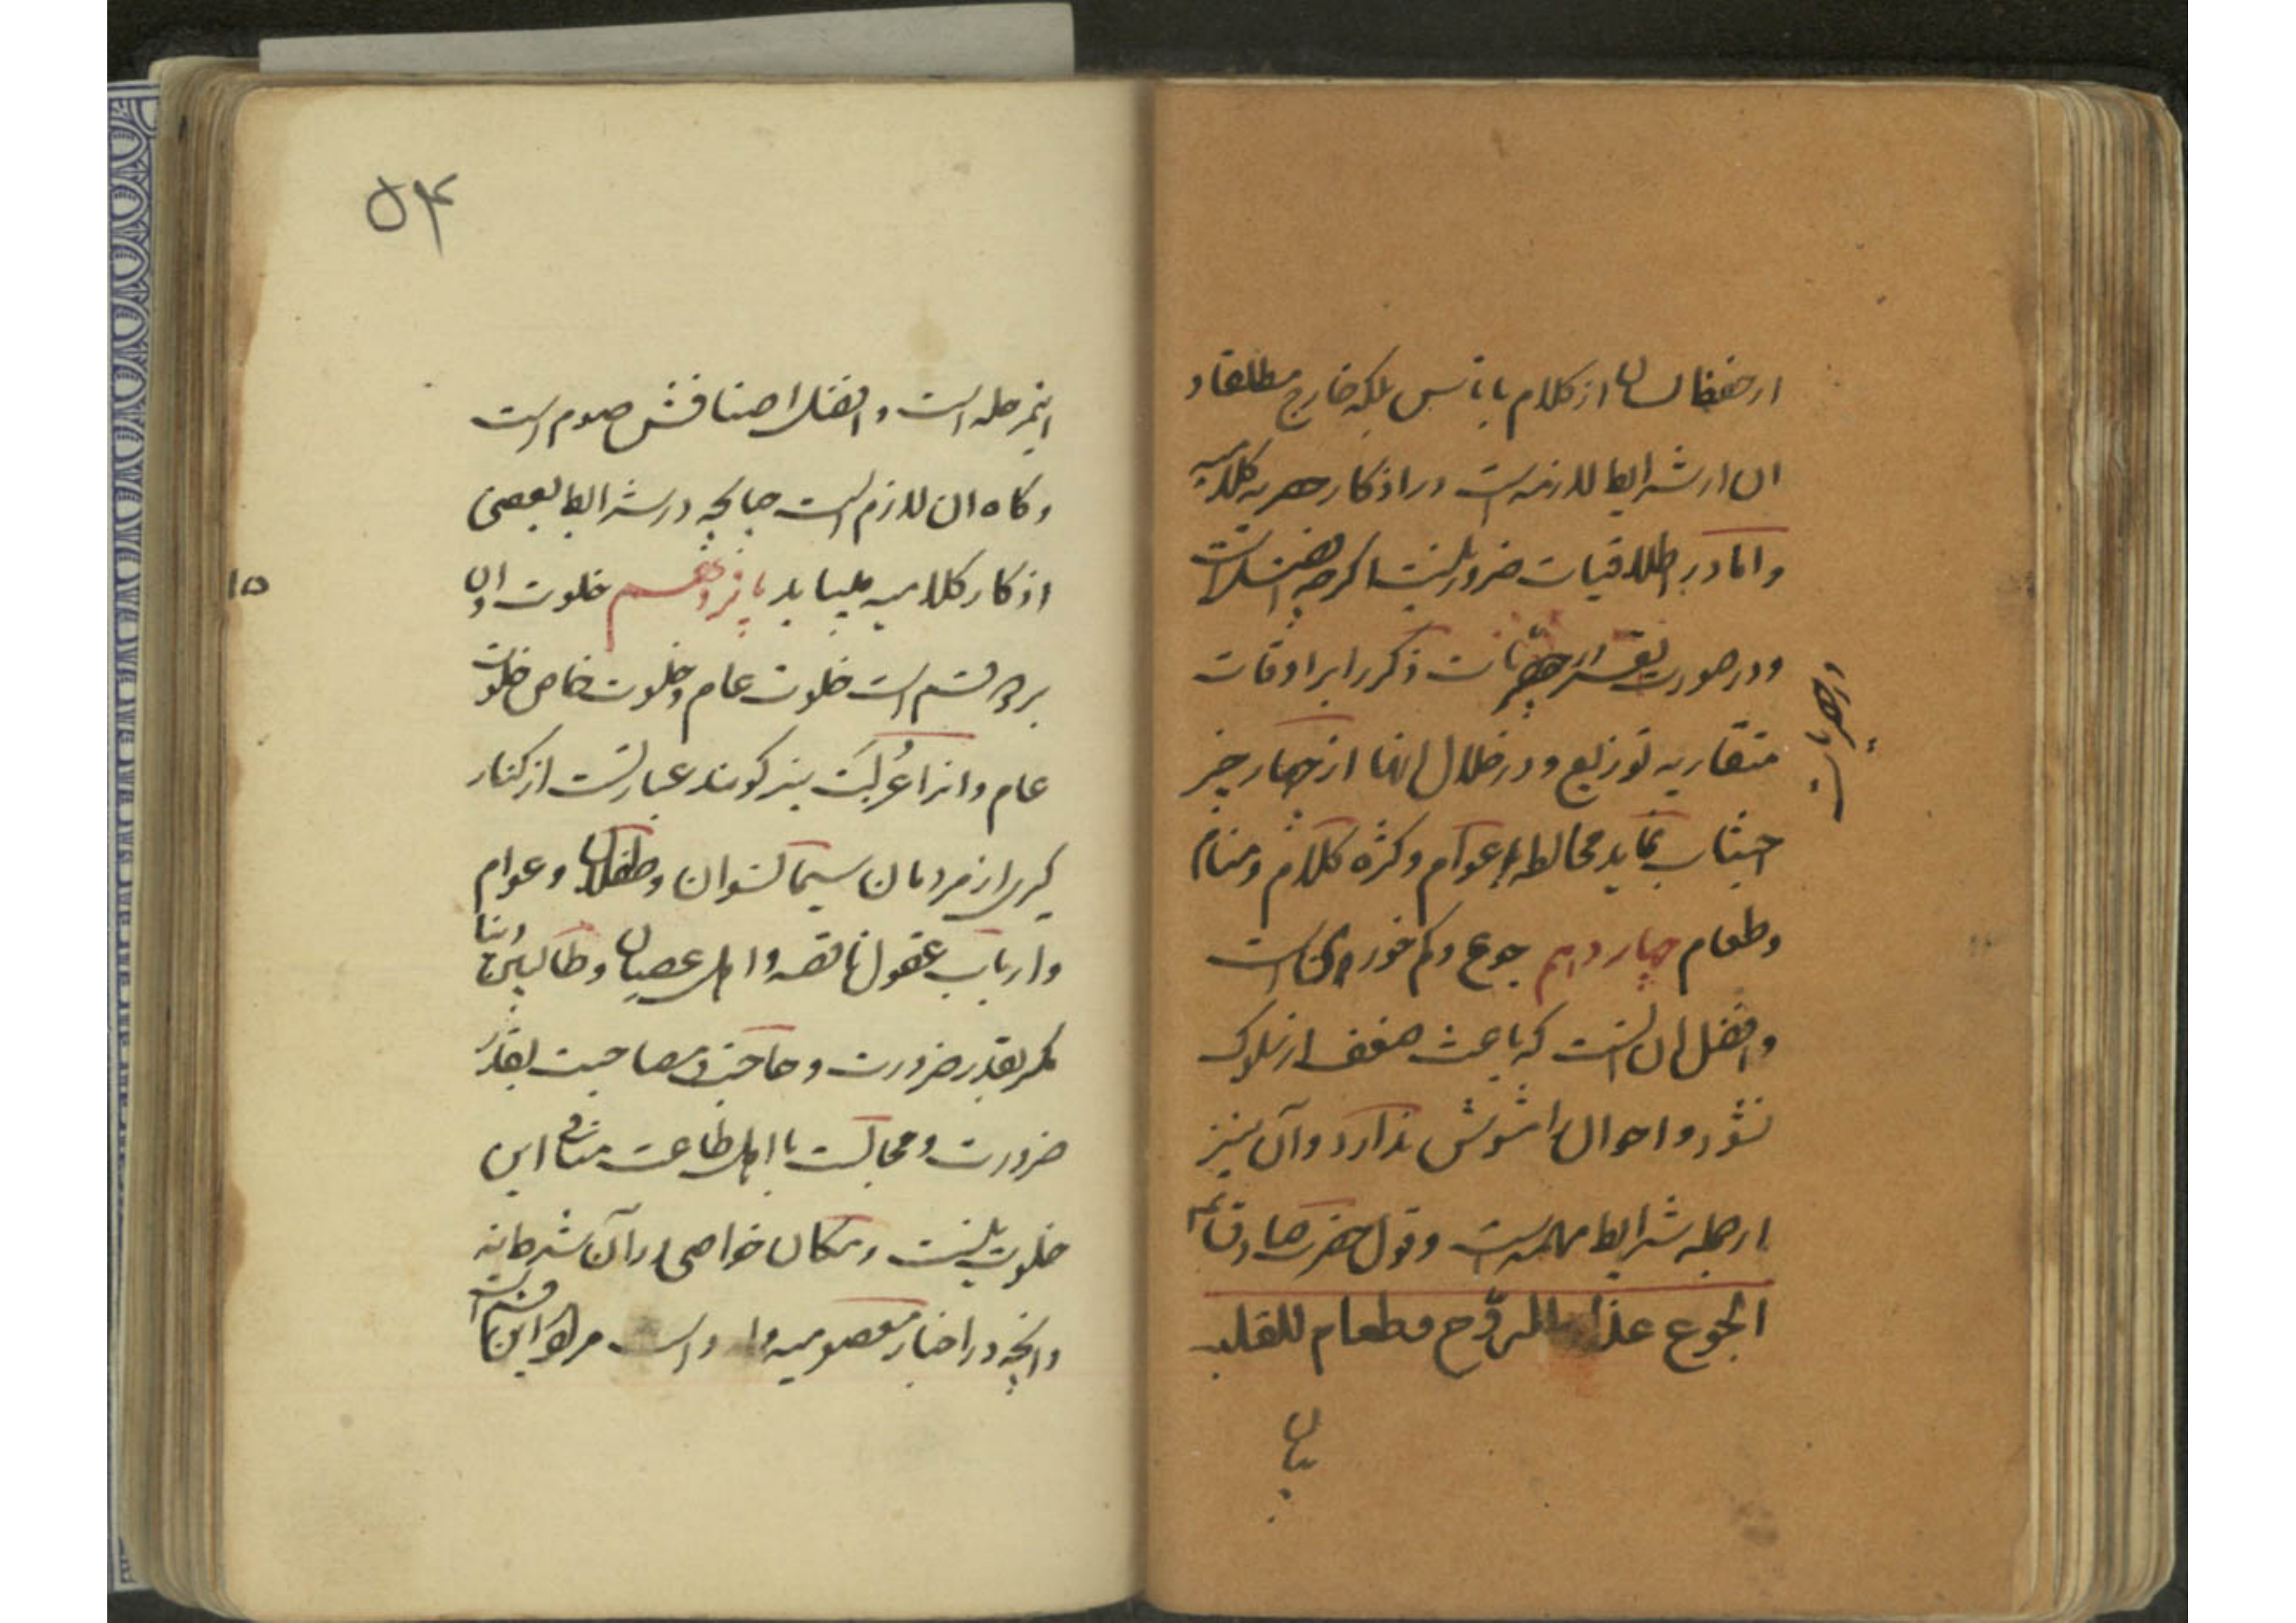 از حفظ لسان از کلام با ناس بلکه خارج مطلقا و
ان از شرایط لازمه است در اذکار حصریه کلامیه
و اما در اطلاقیات ضرور نیست اگرچه افضل است
و در صورت ذکر را بر اوقات
متقاربه توزیع و در خلال انها از چهار چیز
اجتناب نماید مخالطه عوام و کثرة کلام و منام
و طعام چهاردهم جوع و کم خوردن است
و افضل ان انست که باعث ضعف از سلوک
نشود و احوال را مشوش ندارد و آن نیز
از جمله شرایط مهمه است و قول حضرت صادق
الجوع للروح و طعام للقلب
بیان
۵۴
اینمرحله است و افضل اصنافش صوم است
و کاه ان لازم است چنانچه در شرایط بعضی
اذکار کلامیه میاید پانزدهم خلوت و ان
۱۵
بر دو قسم است خلوت عام و خلوت خاص خلوت
عام و انرا عُزلَت نیز کویند عبارتست از کنار
کیری از مردمان سیما نسوان و طفلان و عوام
و ارباب عقول ناقصه و اهل عصیان و طالبین دنیا
مکر بقدر ضرورت و حاجت و مصاحبت بقدر
ضرورت و مجالست با اهل طاعت منافی این
خلوت نیست و مکان خواصی در آن شرط نه
و انچه در اخبار معصومیه وارد است مراد این قسم است